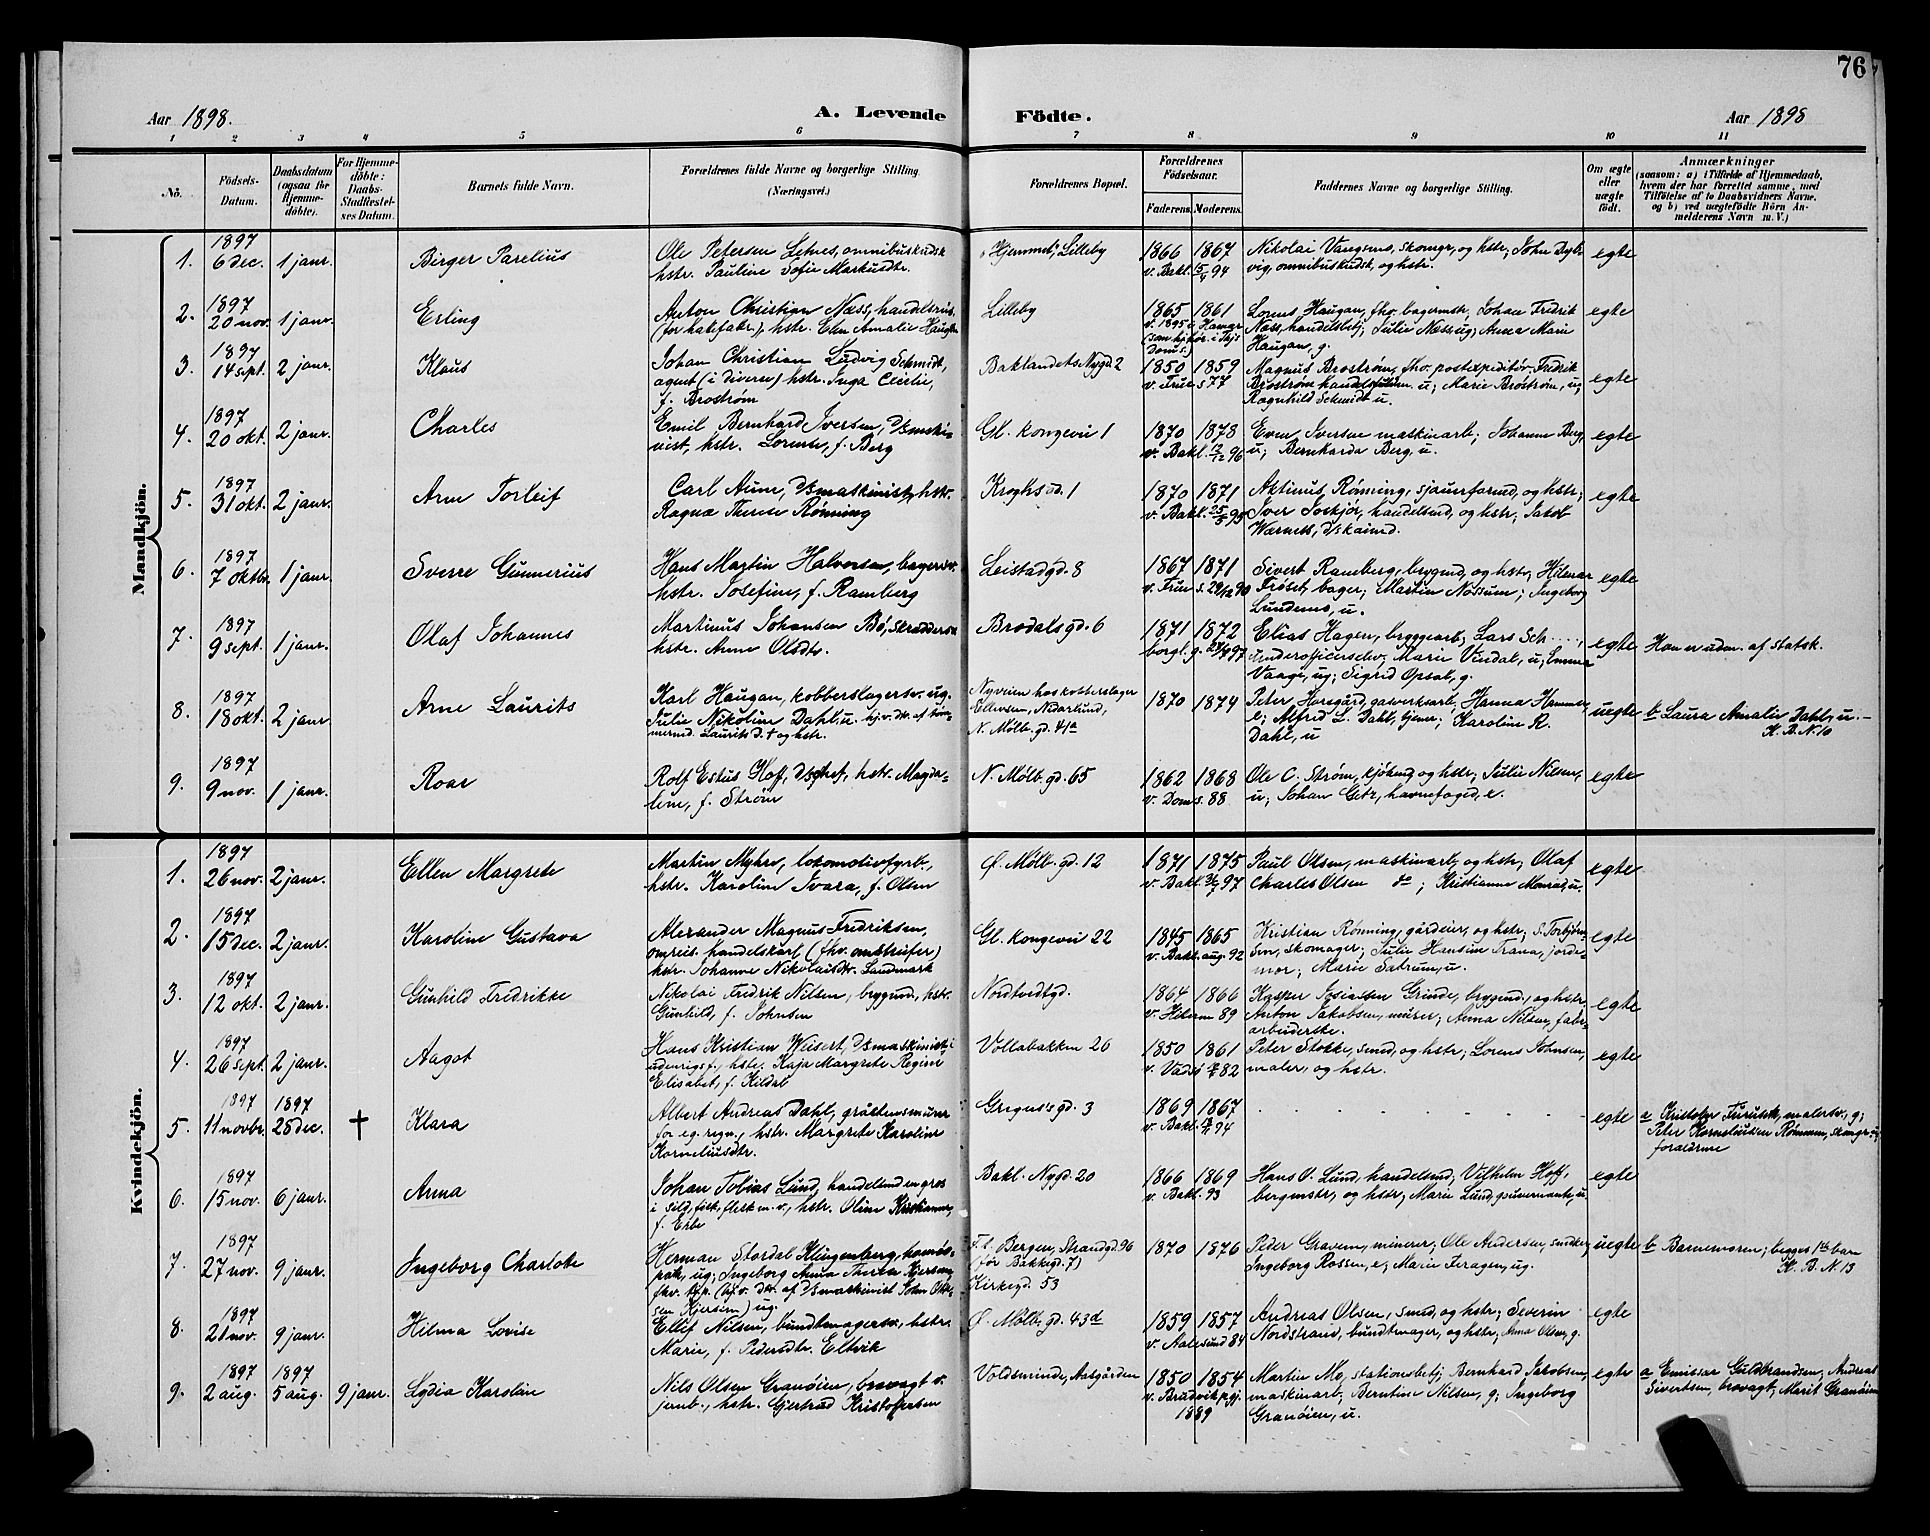 76
Aar 1898. A. Levende Födte. Aar 1898
1 2 3 4 5 6 7 8 9 10 11
No. Födsels-Datum. Daabsdatum (ogsaa for Hjemmedöbte). For Hjemmedöbte: Daabs-Stadfæstelses Datum. Barnets fulde Navn. Forældrenes fulde Navne og borgerlige Stilling (Næringsvei.) Forældrenes Bopæl. Forældrenes Födselsaar. Faderens. Moderens. Faddernes Navne og borgerlige Stilling. Om ægte eller uægte født. Anmærkninger (saasom: a) i Tilfælde af Hjemmedaab, hvem der har forrettet samme, med Tilföielse af to Daabsvidners Navne, og b) ved uægtefödte Börn Anmelderens Navn m. V.)
Mandkjön.
1. 1897 6 dec. 1 janr. Birger Parelius
Ole Petersen Letnes, omnibuskudsk
hstr. Pauline Sofie Markusdtr.
"Hjemmet", Lilleby
1866 1867
v. Bakl. 94
Nikolai Vangsmo, skomgr, og hstr; John Dybvig, omnibuskudsk, og hstr.
egte
2. 1897 20 nov. 1 janr. Erling
Anton Christian Næss, handelsrus.
hstr. Elen Amalie Haugan
Lilleby
1865 1861
v. 1895
Lorens Haugan, fhv. bagermstr, Johan Fredrik
Næss, handelsbetj; Julie Næss, ug; Anna Marie
Haugan, g.
egte
3. 1897 14 sept. 2 janr. Klaus
Johan Christian Ludvig Schmidt,
agent (i diverse) hstr. Inga Cecilie,
f. Broström
Baklandets Nygd 2
1850 1859
v. Frue s 77
Magnus Broström, fhv. postexpeditör, Fredrik
Broström u; Marie Broström, u;
Ragnhild Schmidt u.
egte
4. 1897 20 okt. 2 janr. Charles
Emil Bernhard Iversen, D/smaskinist, hstr. Lorense, f. Berg
Gl. kongevei 1
1870 1873
v. Bakl. 96
Even Iversen maskinarb; Johanne Berg,
u; Bernharda Berg, u.
egte
5. 1897 31 okt. 2 janr. Arne Torleif
Carl Aune, D/smaskinist, hstr.
Ragna Therese Rönning
Kroghs gd. 1
1870 1871
v. Bakl. 25/5 95
Aktinus Rönning, sjauerformd, og hstr;
Iver Soskjör, handelsmd, og hstr; Jakob
Wærnes,
egte
6. 1897 7 oktbr. 1 janr. Sverre Gunnerius
Hans Martin Halvorsen, bagersv.
hstr. Josefine, f. Ramberg
Leistadgd. 8
1867 1871
v. Frue s. 29/12 90
Sivert Ramberg, brygmd, og hstr; Hilmar
Fröset, bager; Martin Nossum; Ingeborg
Lundemo, u.
egte
7. 1897 9 sept. 1 janr. Olaf Johannes
Martinus Johansen Bö, skræddersv.
hstr. Anne Olsdtr.
Brodalsgd. 6
1871 1872
borgl. g. 97
Elias Hagen, bryggearb; Lars Sch....,
underofficerselev; Marie Vindal, u; Emma
Vaage, ug; Sigrid Opsal, g.
egte
Han er udm. af statsk.
8. 1897 18 okt. 2 janr. Arne Laurits
Karl Haugan, kobberslagersv. ug.
Julie Nikoline Dahl, u. hjv. dtr. af tömmermd. Laurits D. † og hstr.
Nyveien hos kobberslager
Ellevsen, Nidarlund,
N. Mölb. gd. 41a
1870 1874
Peter Horsgård, gasverksarb; Hanna Hammer,
e; Alfred L. Dahl, tjener; Karoline R.
Dahl, u
uegte
b Laura Amalie Dahl, u. –
K. B. N. 10
9. 1897 9 nov. 1 janr. Roar
Rolf Estus Hof, hstr. Magdalene, f. Ström
N. Mölb. gd. 65
1862 1868
v. Dom s. 88
Ole C. Ström, kjöbmd, og hstr; Julie Nilsen,
u; Johan Getz, havnefoged, e.
egte
Kvindekjön.
1. 1897 26 nov. 2 janr. Ellen Margrete
Martin Myhre, lokomotivfyrb.,
hstr. Karoline Ivara, f. Olsen
Ø. Mölb. gd. 12
1871 1875
v. Bakl. 97
Paul Olsen, maskinarb, og hstr; Olaf
Charles Olsen do; Kristianne Monrad, u.
egte
2. 1897 15 dec. 2 janr. Karoline Gustava
Alexander Magnus Fredriksen,
omreis. handelskarl (fhv. omstreifer)
hstr. Johanne Nikolaisdtr. Landmark
Gl. kongevei 22
1845 1865
v. Bakl. aug. 92
Kristian Rönning, gårdeier, og hstr; S. Torbjörnsen, skomager; Julie Hansine Trana, jordemor; Marie Satrum, u.
egte
3. 1897 12 okt. 2 janr. Gunhild Fredrikke
Nikolai Fredrik Nilsen, brygmd, hstr.
Gunhild, f. Johnsen
Nordtvedtgd.
1864 1866
v. Hitern 89
Kasper Josiassen Grinde, brygmd., og hstr,
Anton Jakobsen, murer; Anna Nilsen, fabrarbeiderske.
egte
4. 1897 26 sept. 2 janr. Aagot
Hans Kristian Weisert, D/smaskinist i
udenrigsf., hstr. Kaja Margrete Regine
Elisabet, f. Kildal
Vollabakken 26
1850 1861
v. Vadsö 82
Peter Stokke, smed, og hstr; Lorens Johnsen,
maler, og hstr.
egte
5. 1897 11 novbr. 1897 25 dec. † Klara
Albert Andreas Dahl, gråstensmurer
for eg. regn., hstr. Margrete Karoline
Korneliusdtr.
Gregus's gd. 3
1869 1867
v. Bakl. 94
. . . . . .
egte
a Kristofer Furuset, malersv., g;
Peter Korneliusen Rönneen, skomgr. g;
forældrene
6. 1897 15 nov. 6 janr. Anna
Johan Tobias Lund, handelsmd en gros
i sild, fisk, flesk m. v., hstr. Oline Kristianne,
f. Erbe
Bakl. Nygd. 20
1866 1869
v. Bakl. 93
Hans V. Lund, handelsmd; Vilhelm Hoff,
bergenstr, og hstr; Marie Lund, guvernante, u.
egte
7. 1897 27 nov. 9 janr. Ingeborg Charlote
Herman Stordal Klingenberg,
ug; Ingeborg Anna Therese Kjersem,
fhv. (hjv. dtr. af D/smaskinist John Olsen Kjersem) ug.
F. t. Bergen, Strandgd. 96
(för Bakkegd. 7)
Kirkegd. 53
1870 1876
Peder Gravem, minerer; Ole Andersen, snedker,
Ingeborg Rossen, e; Marie Feragen, ug.
uegte
b Barnemoren; begges 1ste barn
K. B. N. 13
8. 1897 21 nov. 9 janr. Hilma Lovise
Ellef Nilsen, bundtmagersv., hstr.
Marie, f. Pedersdtr. Eltvik
Ø. Mölb. gd. 43d
1859 1857
v. Aalesund 84
Andreas Olsen, smed, og hstr; Severin
Nordstrand, bundtmager, og hstr; Anna Olsen, g.
egte
9. 1897 2 aug. 1897 5 aug. 9 janr. Lydia Karoline
Nils Olsen Granöien, brovagt v.
jernb., hstr. Gjertrud Kristofersen
Voldsminde, Astgården
1850 1854
v. Bratvik pgj.
1889
Martin Mo, stationsbetj; Bernhard Jakobsen,
maskinarb; Berntine Nilsen, g; Ingeborg
Granöien, u.
egte
a Emissær Guldbrandsen, Andreas
Sivertsen, brovagt; Marit Granöien